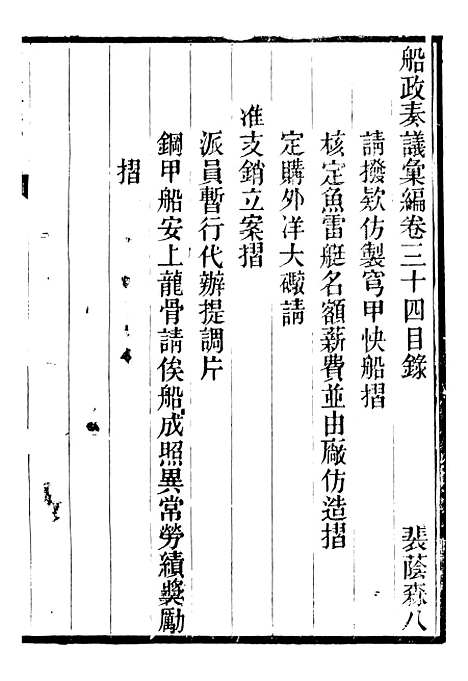 船政奏議彙編卷三十四目錄　　裴蔭森八
請撥欵仿製穹甲快船摺
核定魚雷艇名額薪費並由廠仿造摺
定購外洋大礮請
准支銷立案摺
派員暫行代辦提調片
鋼甲船安上龍骨請俟船成照異常勞績奬勵
摺